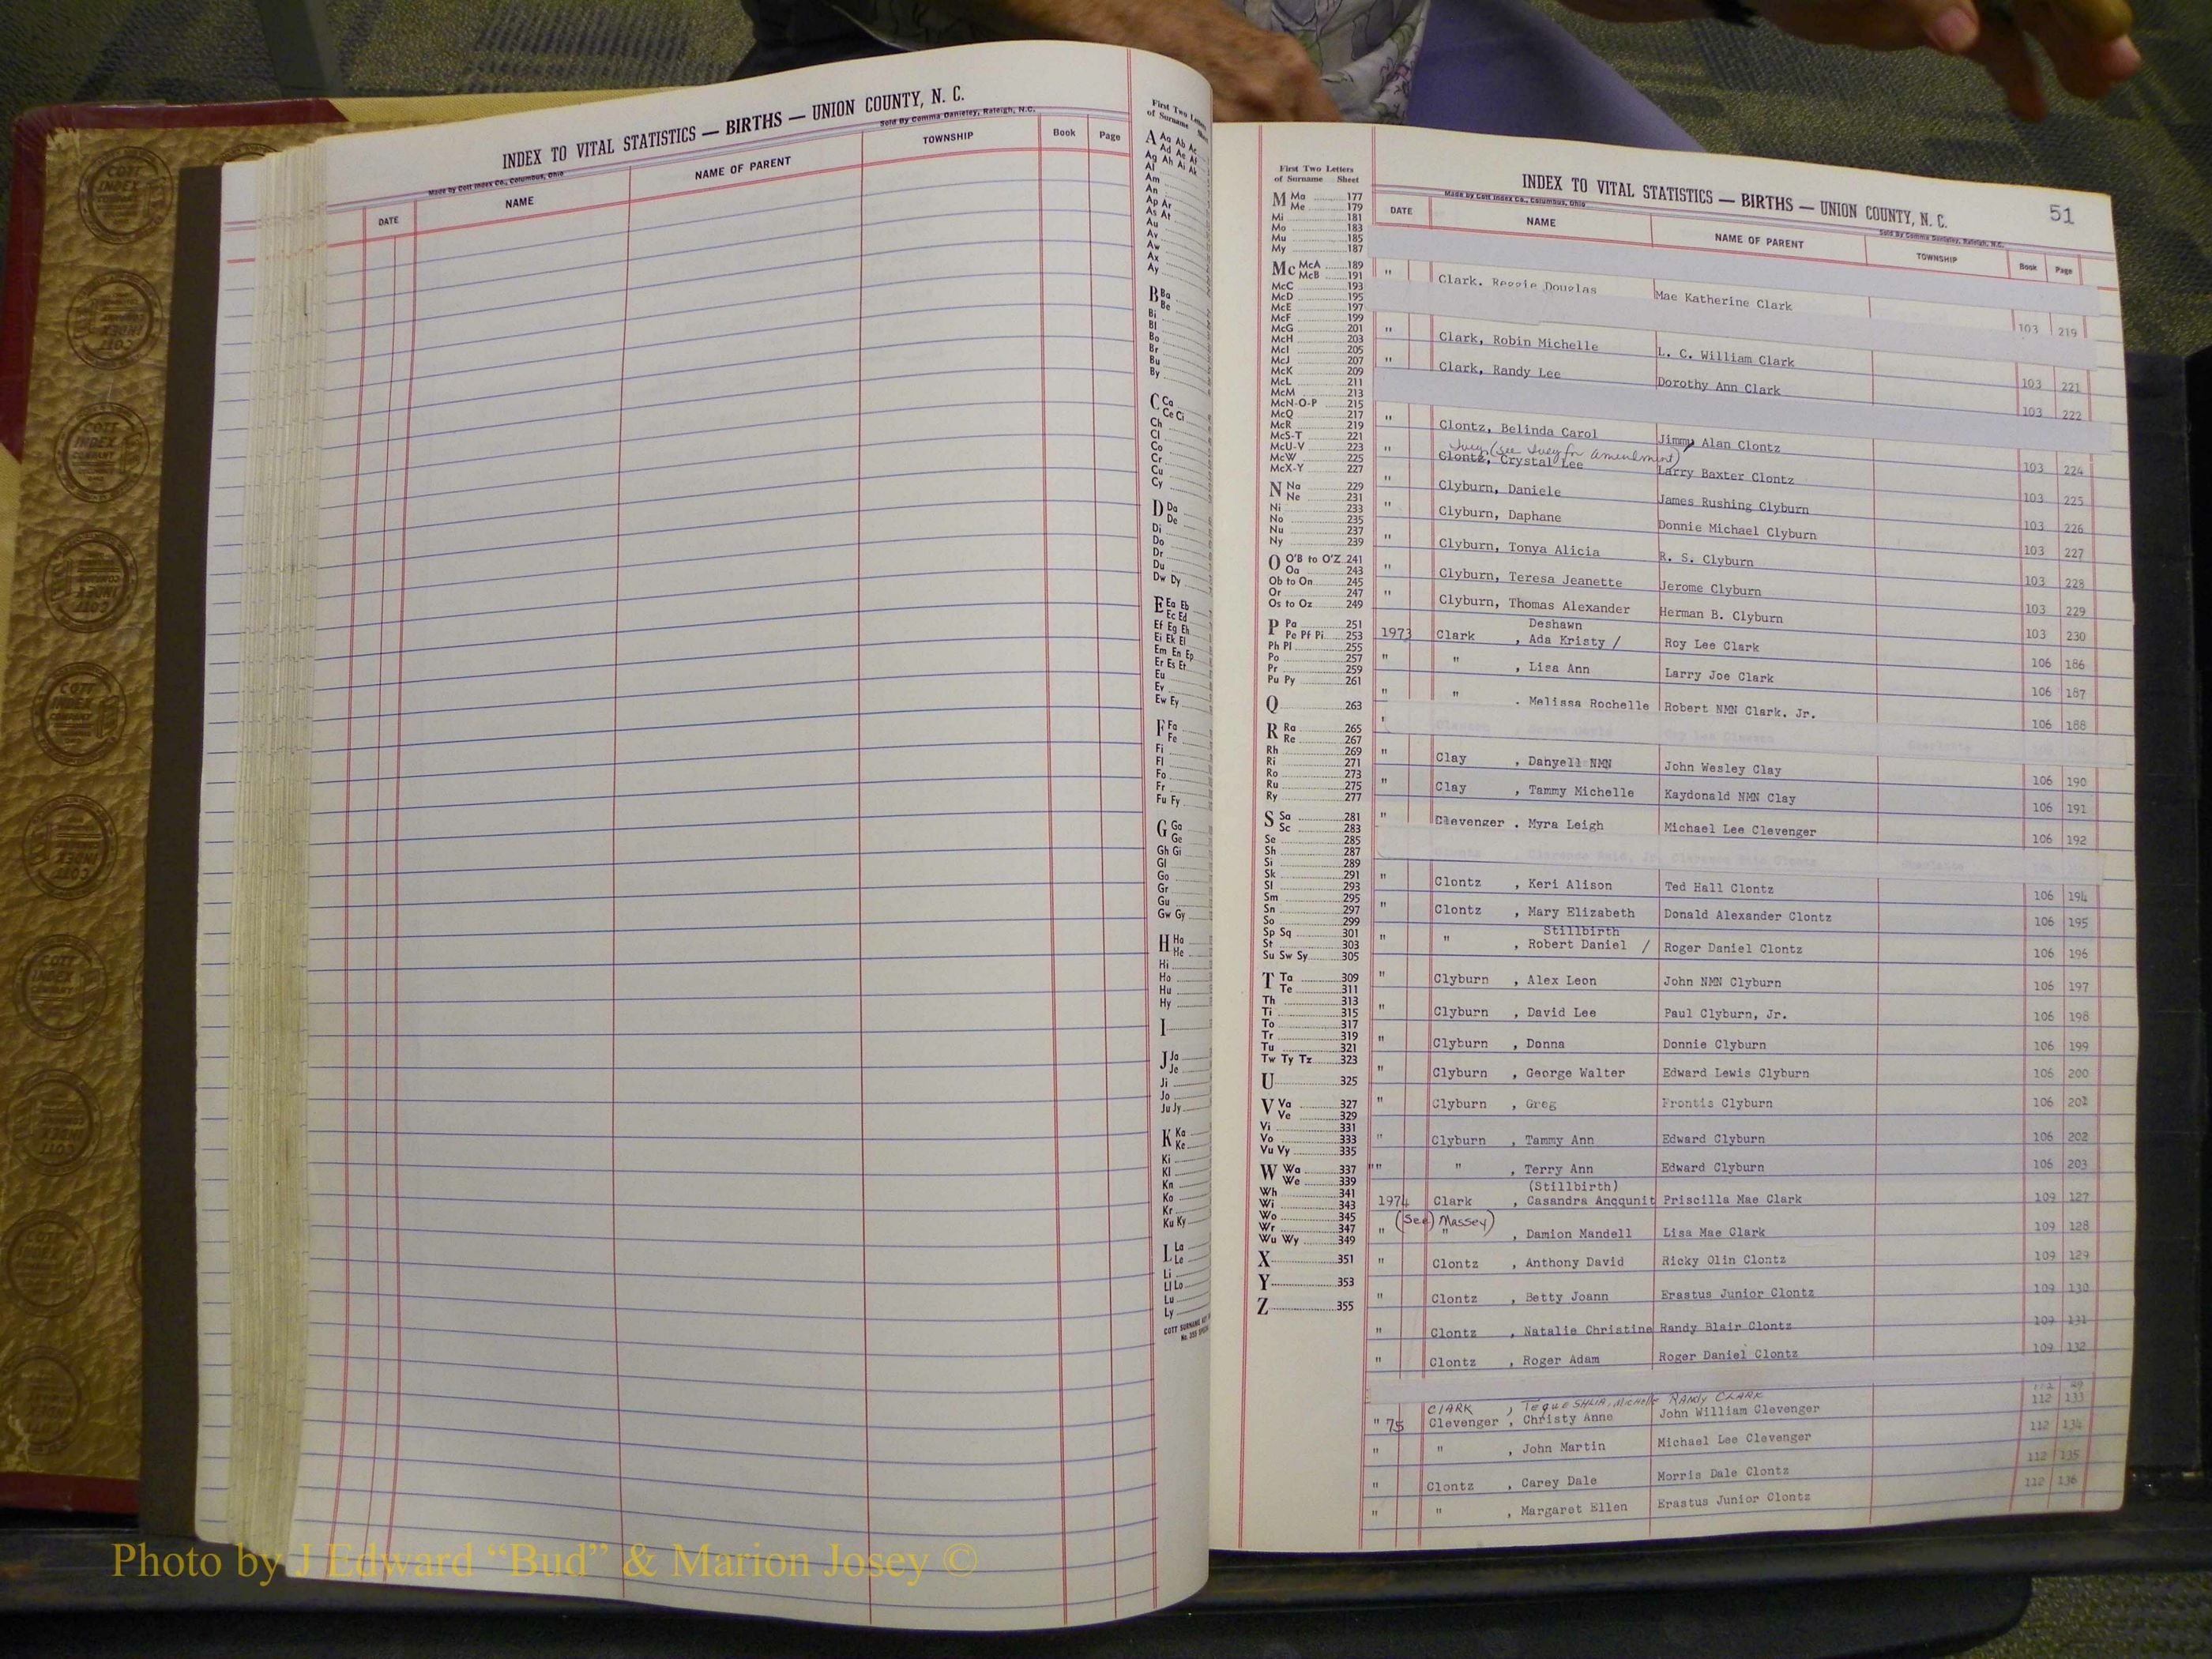 INDEX TO VITAL STATISTICS — BIRTHS — UNION COUNTY, N. C.
Made by Cott Index Co., Columbus, Ohio
Sold By Comma Danieley, Raleigh, N.C.
DATE NAME NAME OF PARENT TOWNSHIP Book Page
First Two Letters
of Surname Sheet
A Aa Ab Ac
Ad Ae Af
Ag Ah Ai Ak
Al
Am
An
Ap Ar
As At
Au
Av
Aw
Ax
Ay
B Ba
Be
Bi
Bl
Bo
Br
Bu
By
C Ca
Ce Ci
Ch
Cl
Co
Cr
Cu
Cy
D Da
De
Di
Do
Dr
Du
Dw Dy
E Ea Eb
Ec Ed
Ef Eg Eh
Ei Ek El
Em En Ep
Er Es Et
Eu
Ev
Ew Ey
F Fa
Fe
Fi
Fl
Fo
Fr
Fu Fy
G Ga
Ge
Gh Gi
Gl
Go
Gr
Gu
Gw Gy
H Ha
He
Hi
Ho
Hu
Hy
I
J Ja
Je
Ji
Jo
Ju Jy
K Ka
Ke
Ki
Kl
Kn
Ko
Kr
Ku Ky
L La
Le
Li
Ll Lo
Lu
Ly
First Two Letters
of Surname Sheet
M Ma 177
Me 179
Mi 181
Mo 183
Mu 185
My 187
Mc McA 189
McB 191
McC 193
McD 195
McE 197
McF 199
McG 201
McH 203
McI 205
McJ 207
McK 209
McL 211
McM 213
McN-O-P 215
McQ 217
McR 219
McS-T 221
McU-V 223
McW 225
McX-Y 227
N Na 229
Ne 231
Ni 233
No 235
Nu 237
Ny 239
O O'B to O'Z 241
Oa 243
Ob to On 245
Or 247
Os to Oz 249
P Pa 251
Pe Pf Pi 253
Ph Pl 255
Po 257
Pr 259
Pu Py 261
Q 263
R Ra 265
Re 267
Rh 269
Ri 271
Ro 273
Ru 275
Ry 277
S Sa 281
Sc 283
Se 285
Sh 287
Si 289
Sk 291
Sl 293
Sm 295
Sn 297
So 299
Sp Sq 301
St 303
Su Sw Sy 305
T Ta 309
Te 311
Th 313
Ti 315
To 317
Tr 319
Tu 321
Tw Ty Tz 323
U 325
V Va 327
Ve 329
Vi 331
Vo 333
Vu Vy 335
W Wa 337
We 339
Wh 341
Wi 343
Wo 345
Wr 347
Wu Wy 349
X 351
Y 353
Z 355
INDEX TO VITAL STATISTICS — BIRTHS — UNION COUNTY, N. C. 51
Made by Cott Index Co., Columbus, Ohio
Sold By Comma Danieley, Raleigh, N.C.
DATE NAME NAME OF PARENT TOWNSHIP Book Page
" Clark, Reggie Douglas Mae Katherine Clark 103 219
" Clark, Robin Michelle L. C. William Clark 103 221
" Clark, Randy Lee Dorothy Ann Clark 103 222
" Clontz, Belinda Carol Jimmy Alan Clontz 103 224
(see for amendment)
" Clontz, Crystal Lee Larry Baxter Clontz 103 225
" Clyburn, Daniele James Rushing Clyburn 103 226
" Clyburn, Daphane Donnie Michael Clyburn 103 227
" Clyburn, Tonya Alicia R. S. Clyburn 103 228
" Clyburn, Teresa Jeanette Jerome Clyburn 103 229
" Clyburn, Thomas Alexander Herman B. Clyburn 103 230
Deshawn
1973 Clark , Ada Kristy / Roy Lee Clark 106 186
" " , Lisa Ann Larry Joe Clark 106 187
" " , Melissa Rochelle Robert NMN Clark, Jr. 106 188
" Clay , Danyell NMN John Wesley Clay 106 190
" Clay , Tammy Michelle Kaydonald NMN Clay 106 191
" Clevenger , Myra Leigh Michael Lee Clevenger 106 192
" Clontz , Keri Alison Ted Hall Clontz 106 194
" Clontz , Mary Elizabeth Donald Alexander Clontz 106 195
Stillbirth
" " , Robert Daniel / Roger Daniel Clontz 106 196
" Clyburn , Alex Leon John NMN Clyburn 106 197
" Clyburn , David Lee Paul Clyburn, Jr. 106 198
" Clyburn , Donna Donnie Clyburn 106 199
" Clyburn , George Walter Edward Lewis Clyburn 106 200
" Clyburn , Greg Frontis Clyburn 106 201
" Clyburn , Tammy Ann Edward Clyburn 106 202
"" " , Terry Ann Edward Clyburn 106 203
(Stillbirth)
1974 Clark , Casandra Anqqunit Priscilla Mae Clark 109 127
(See) Massey)
" " , Damion Mandell Lisa Mae Clark 109 128
" Clontz , Anthony David Ricky Olin Clontz 109 129
" Clontz , Betty Joann Erastus Junior Clontz 109 130
" Clontz , Natalie Christine Randy Blair Clontz 109 131
" Clontz , Roger Adam Roger Daniel Clontz 109 132
CLARK , RANDY CLARK
" 75 Clevenger , Christy Anne John William Clevenger 112 133
" " , John Martin Michael Lee Clevenger 112 134
" Clontz , Carey Dale Morris Dale Clontz 112 135
" " , Margaret Ellen Erastus Junior Clontz 112 136
Photo by J Edward “Bud” & Marion Josey ©